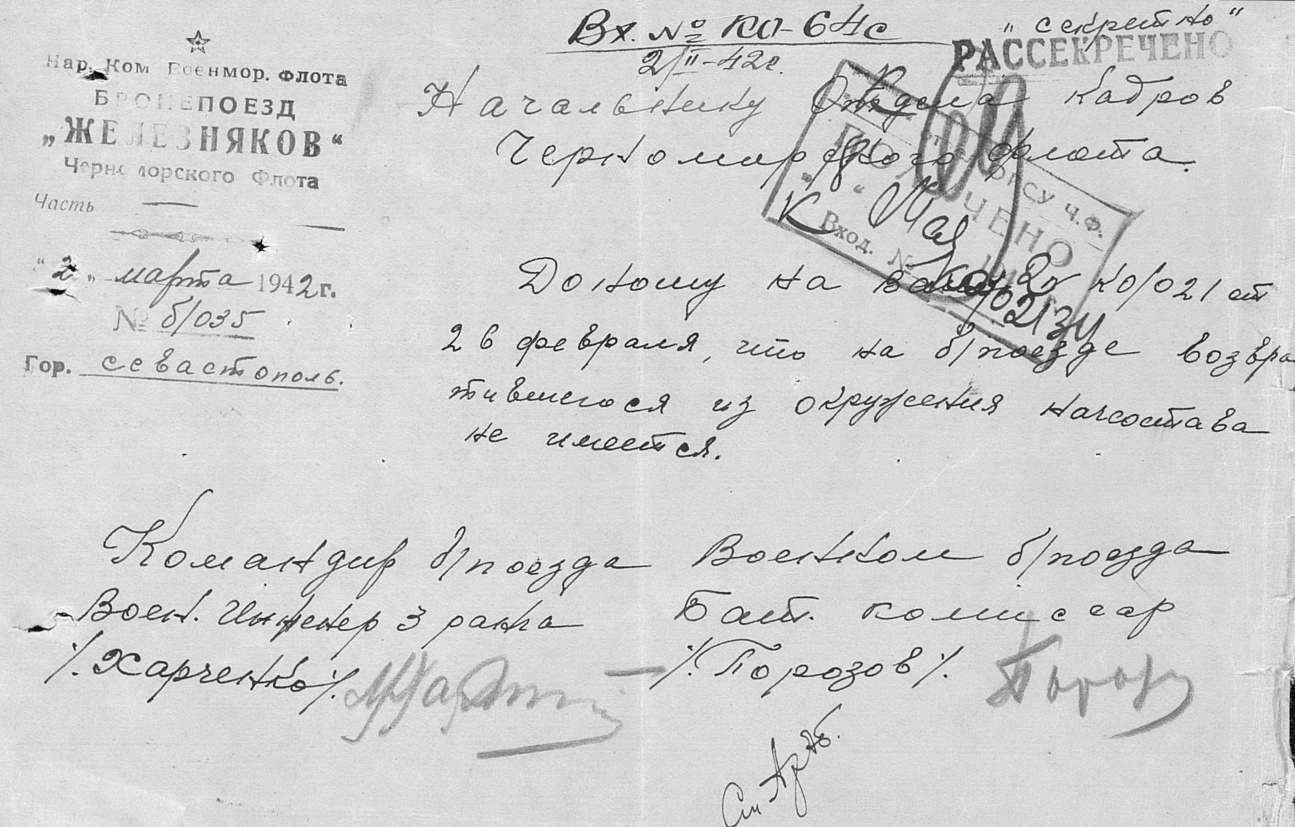 Нар. Ком Военмор. Флота
БРОНЕПОЕЗД
„ЖЕЛЕЗНЯКОВ“
Черноморского Флота
Часть
"2„ марта 1942 г.
№ б/035
Гор. севастополь.
Вх. № КО-64с
2/II-42г.
„секретно“
РАССЕКРЕЧЕНО
Начальнику Отдела Кадров
Черноморского флота.
ПОЛУЧЕНО
СУ Ч.Ф.
Вход. №
Мая
Доношу на ваш КО/021 от
26 февраля, что на б/поезде возвра
тившегося из окружения начсостава
не имеется.
Командир б/поезда
Воен. Инженер 3 ранга
/.Харченко/.
Военком б/поезда
Бат. комиссар
/.Порозов/.